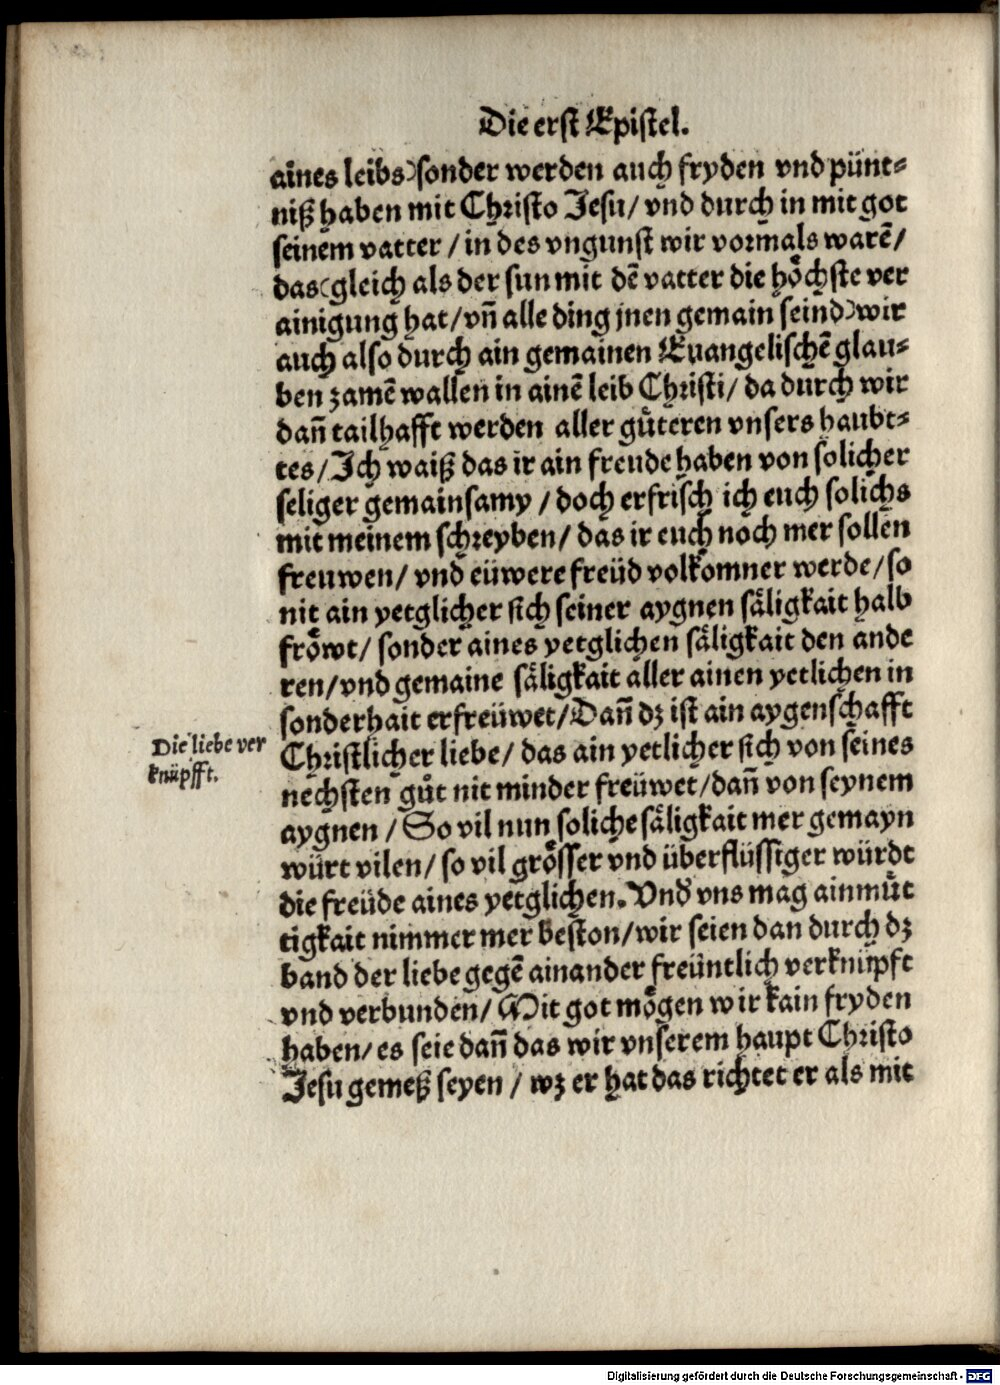 Die erst Epistel.
aines leibs)sonder werden auch fryden vnd pünt⸗
niß haben mit Christo Jesu/ vnd durch in mit got
seinem vatter / in des vngunst wir vormals warē/
das(gleich als der sun mit dē vatter die hoͤchste ver
ainigung hat/vñ alle ding jnen gemain seind)wir
auch also durch ain gemainen Euangelischē glau⸗
ben zamē wallen in ainē leib Christi/ da durch wir
dañ tailhafft werden aller guͤteren vnsers haubt⸗
tes/Ich waiß das ir ain freude haben von solicher
seliger gemainsamy / doch erfrisch ich euch solichs
mit meinem schreyben/ das ir euch noch mer sollen
freuwen/ vnd eüwere freüd volkomner werde/so
nit ain yetglicher sich seiner aygnen saͤligkait halb
froͤwt/ sonder aines yetglichen saͤligkait den ande
ren/vnd gemaine saͤligkait aller ainen yetlichen in
sonderhait erfreüwet/Dañ dz ist ain aygenschafft
Die liebe ver
knüpfft.
Christlicher liebe/ das ain yetlicher sich von seines
nechsten guͦt nit minder freüwet/dañ von seynem
aygnen / So vil nun soliche saͤligkait mer gemayn
würt vilen/ so vil groͤsser vnd überflüssiger würdt
die freüde aines yetglichen. Vnd vns mag ainmuͤt
tigkait nimmer mer beston/wir seien dan durch dz
band der liebe gegē ainander freüntlich verknüpft
vnd verbunden/ Mit got moͤgen wir kain fryden
haben/ es seie dañ das wir vnserem haupt Christo
Jesu gemeß seyen / wz er hat das richtet er als mit
Digitalisierung gefördert durch die Deutsche Forschungsgemeinschaft - DFG